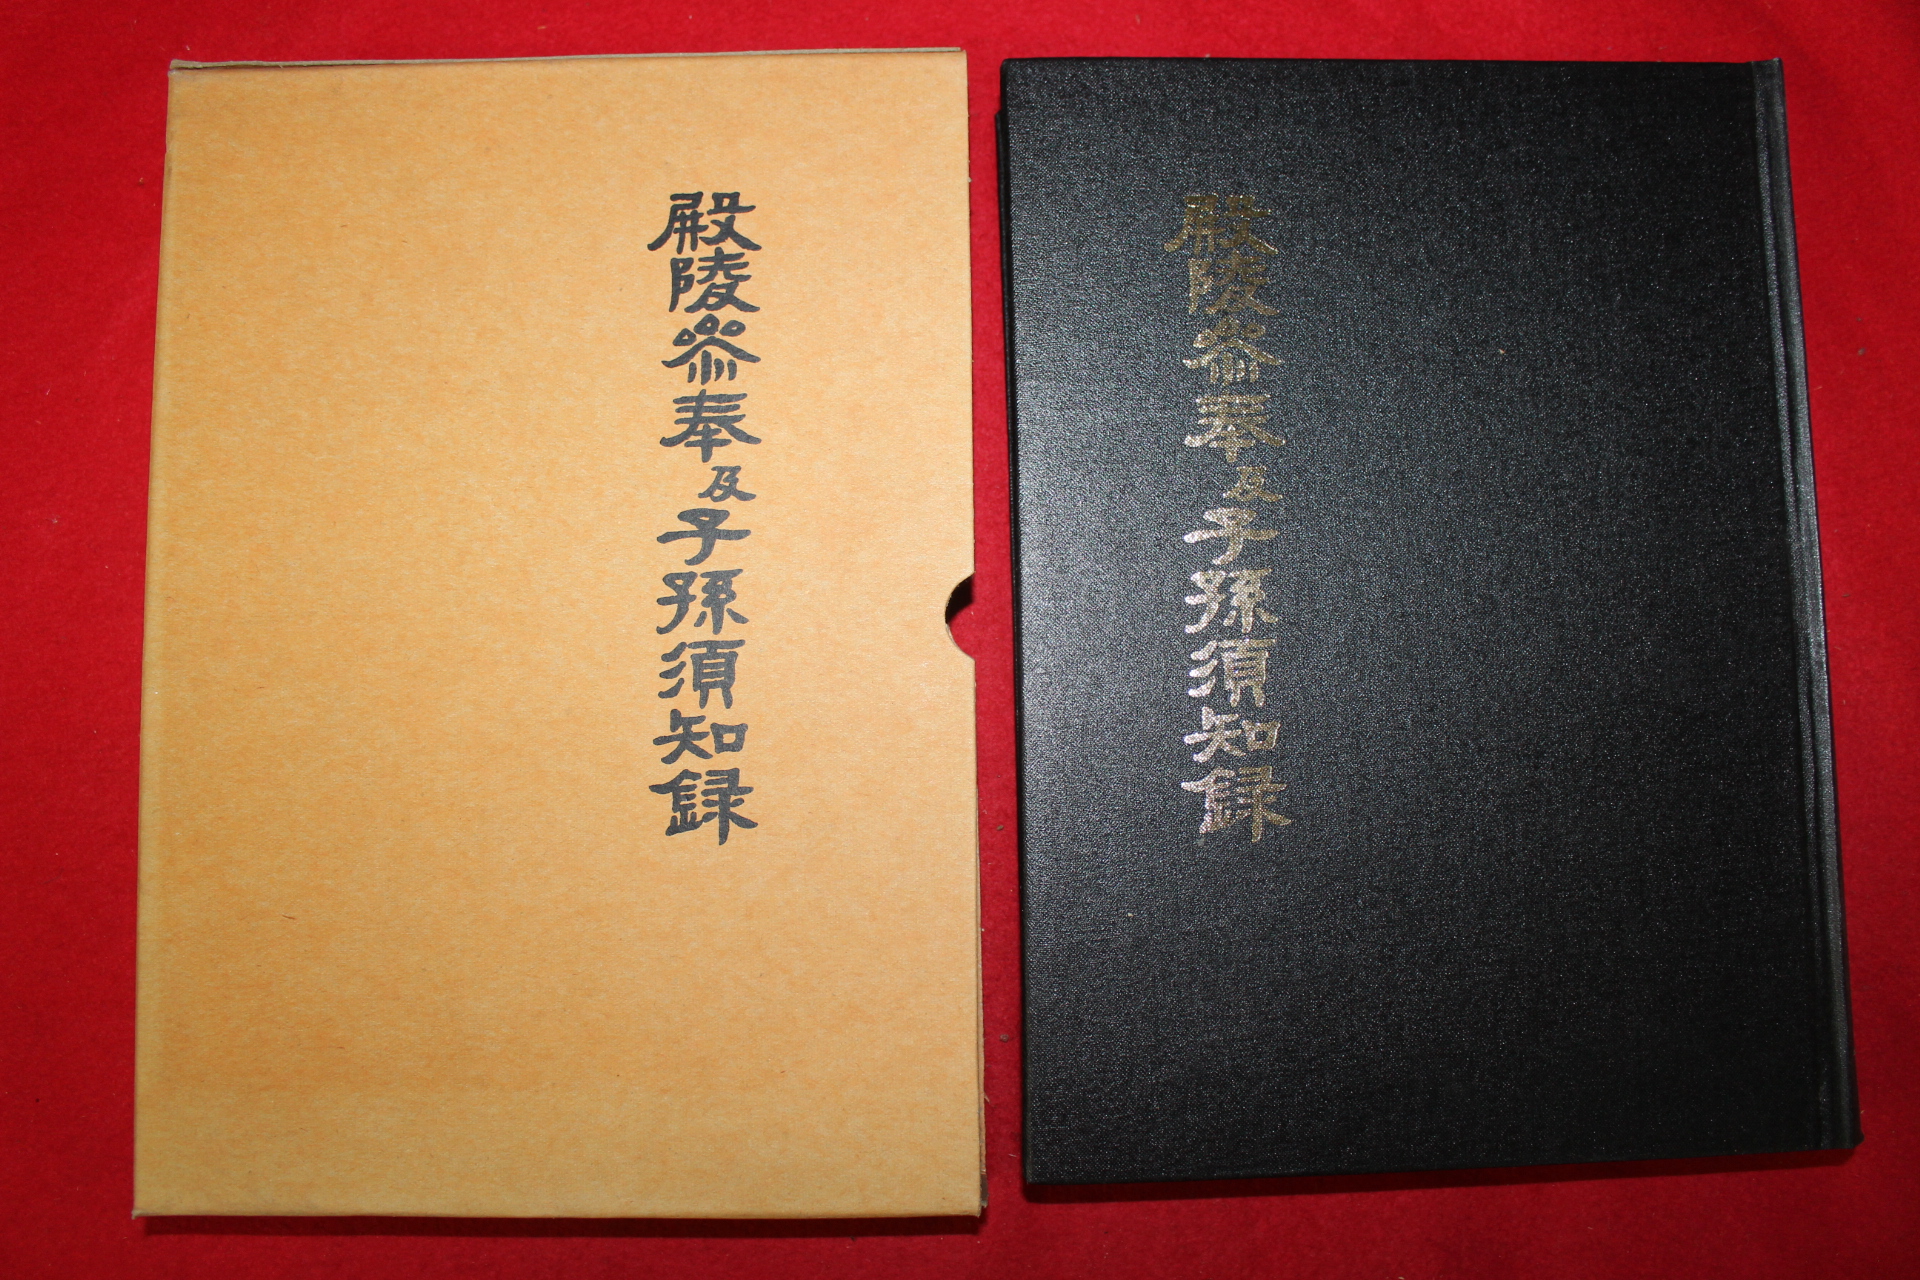 殿陵參奉及子孫須知錄
殿陵參奉及子孫須知錄